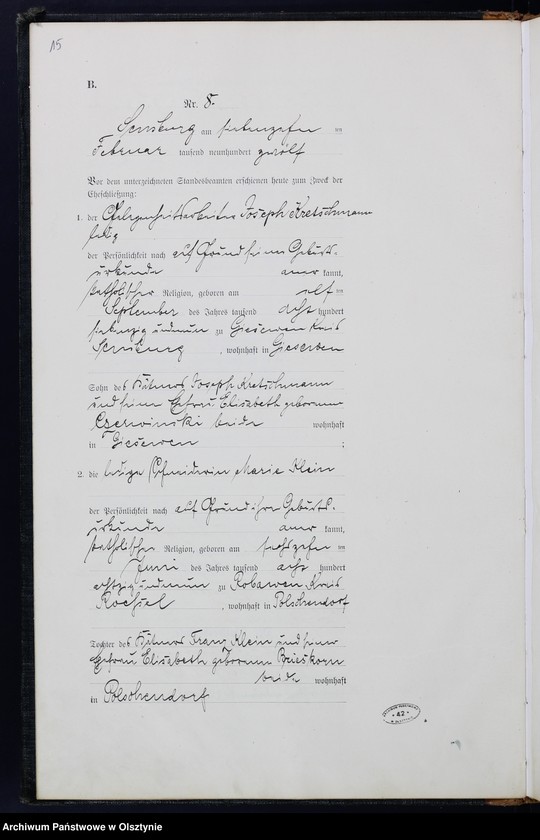 15
B.
Nr. 8.
Sensburg am siebenzehnten
Februar tausend neunhundert zwölf
Vor dem unterzeichneten Standesbeamten erschienen heute zum Zweck der
Eheschließung:
1. der Gelegenheitsarbeiter Joseph Kretschmann
ledig
der Persönlichkeit nach auf Grund seiner Geburts-
urkunde anerkannt,
katholischer Religion, geboren am elften
September des Jahres tausend achthundert
siebenzig und neun zu Giesewen Kreis
Sensburg, wohnhaft in Giesewen
Sohn des Käthners Joseph Kretschmann
und seiner Ehefrau Elisabeth geborenen
Czerwinski beide wohnhaft
in Giesewen;
2. die ledige Schneiderin Marie Klein
der Persönlichkeit nach auf Grund ihrer Geburts-
urkunde anerkannt,
katholischer Religion, geboren am sechszehnten
Juni des Jahres tausend achthundert
achtzig und neun zu Robawen Kreis
Roessel, wohnhaft in Polschendorf
Tochter des Käthners Franz Klein und seiner
Ehefrau Elisabeth geborenen Brieskorn
beide wohnhaft
in Polschendorf
42
Archiwum Państwowe w Olsztynie